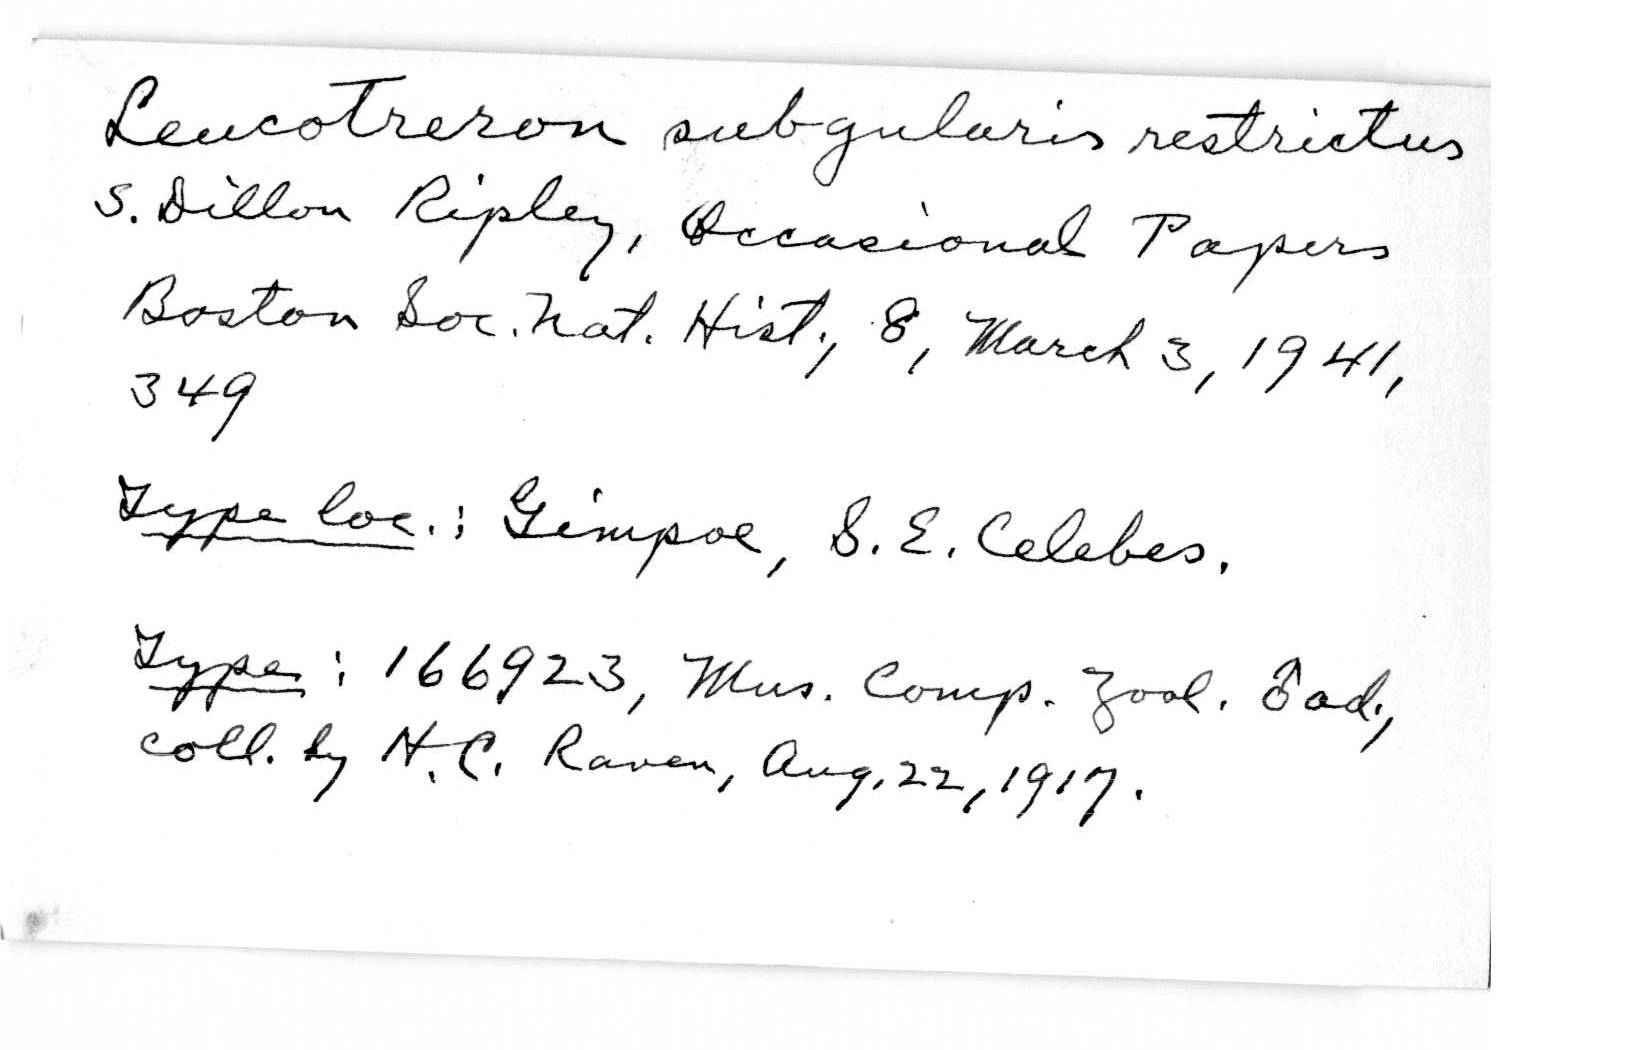 Leucotreron subgularis restrictus
S. Dillon Ripley, Occasional Papers
Boston Soc. Nat. Hist., 8, March 3, 1941,
349
Type loc.: Gimpoe, S.E. Celebes.
Type: 166923, Mus. Comp. Zool. ♂ ad.,
coll. by H.C. Raven, Aug. 22, 1917.